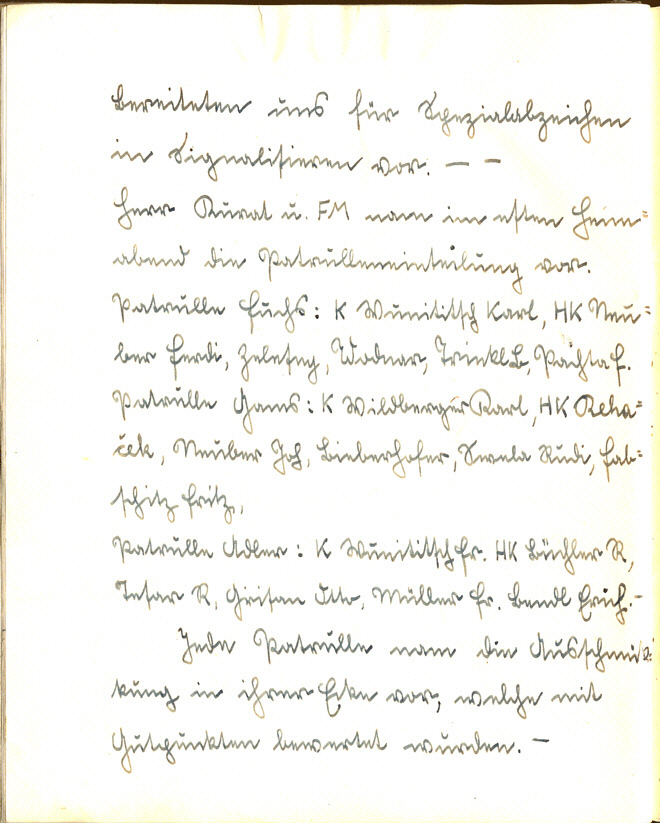 bereiteten uns für Spezialabzeichen
in Signalisieren vor. — —
Herr Kurat u. FM nam im ersten Heim=
abend die Patrulleneinteilung vor.
Patrulle Fuchs: K Wunititsch Karl, HK Neu=
ber Ferdi, Zelesny, Wodnar, Trinkl B, Pachta F.
Patrulle Gams: K Wildberger Karl, HK Reha=
ček, Neuber Joh, Bieberhofer, Swela Rudi, Fab=
schitz Fritz,
Patrulle Adler: K Wunititsch Fr. HK Büchler R,
Tesar R, Grisan Otto, Müller Fr. Bendl Erich.—
Jede Patrulle nam die Ausschmük=
kung in ihrer Ecke vor, welche mit
Gutpunkten bewertet wurden. —